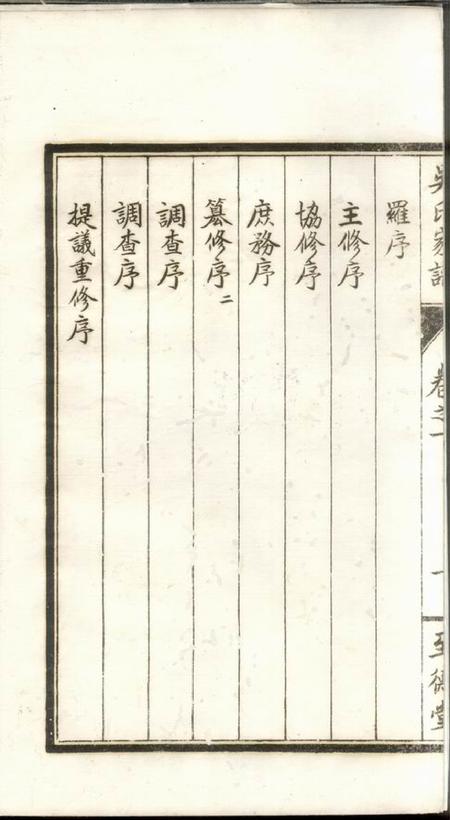 吳氏家譜
卷之一
一
至德堂
羅序
主修序
協修序
庶務序
纂修序二
調查序
調查序
提議重修序